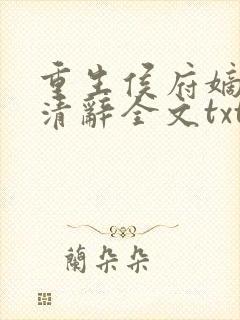 重生侯府嫡
清辭全文txt
蘭朵朵